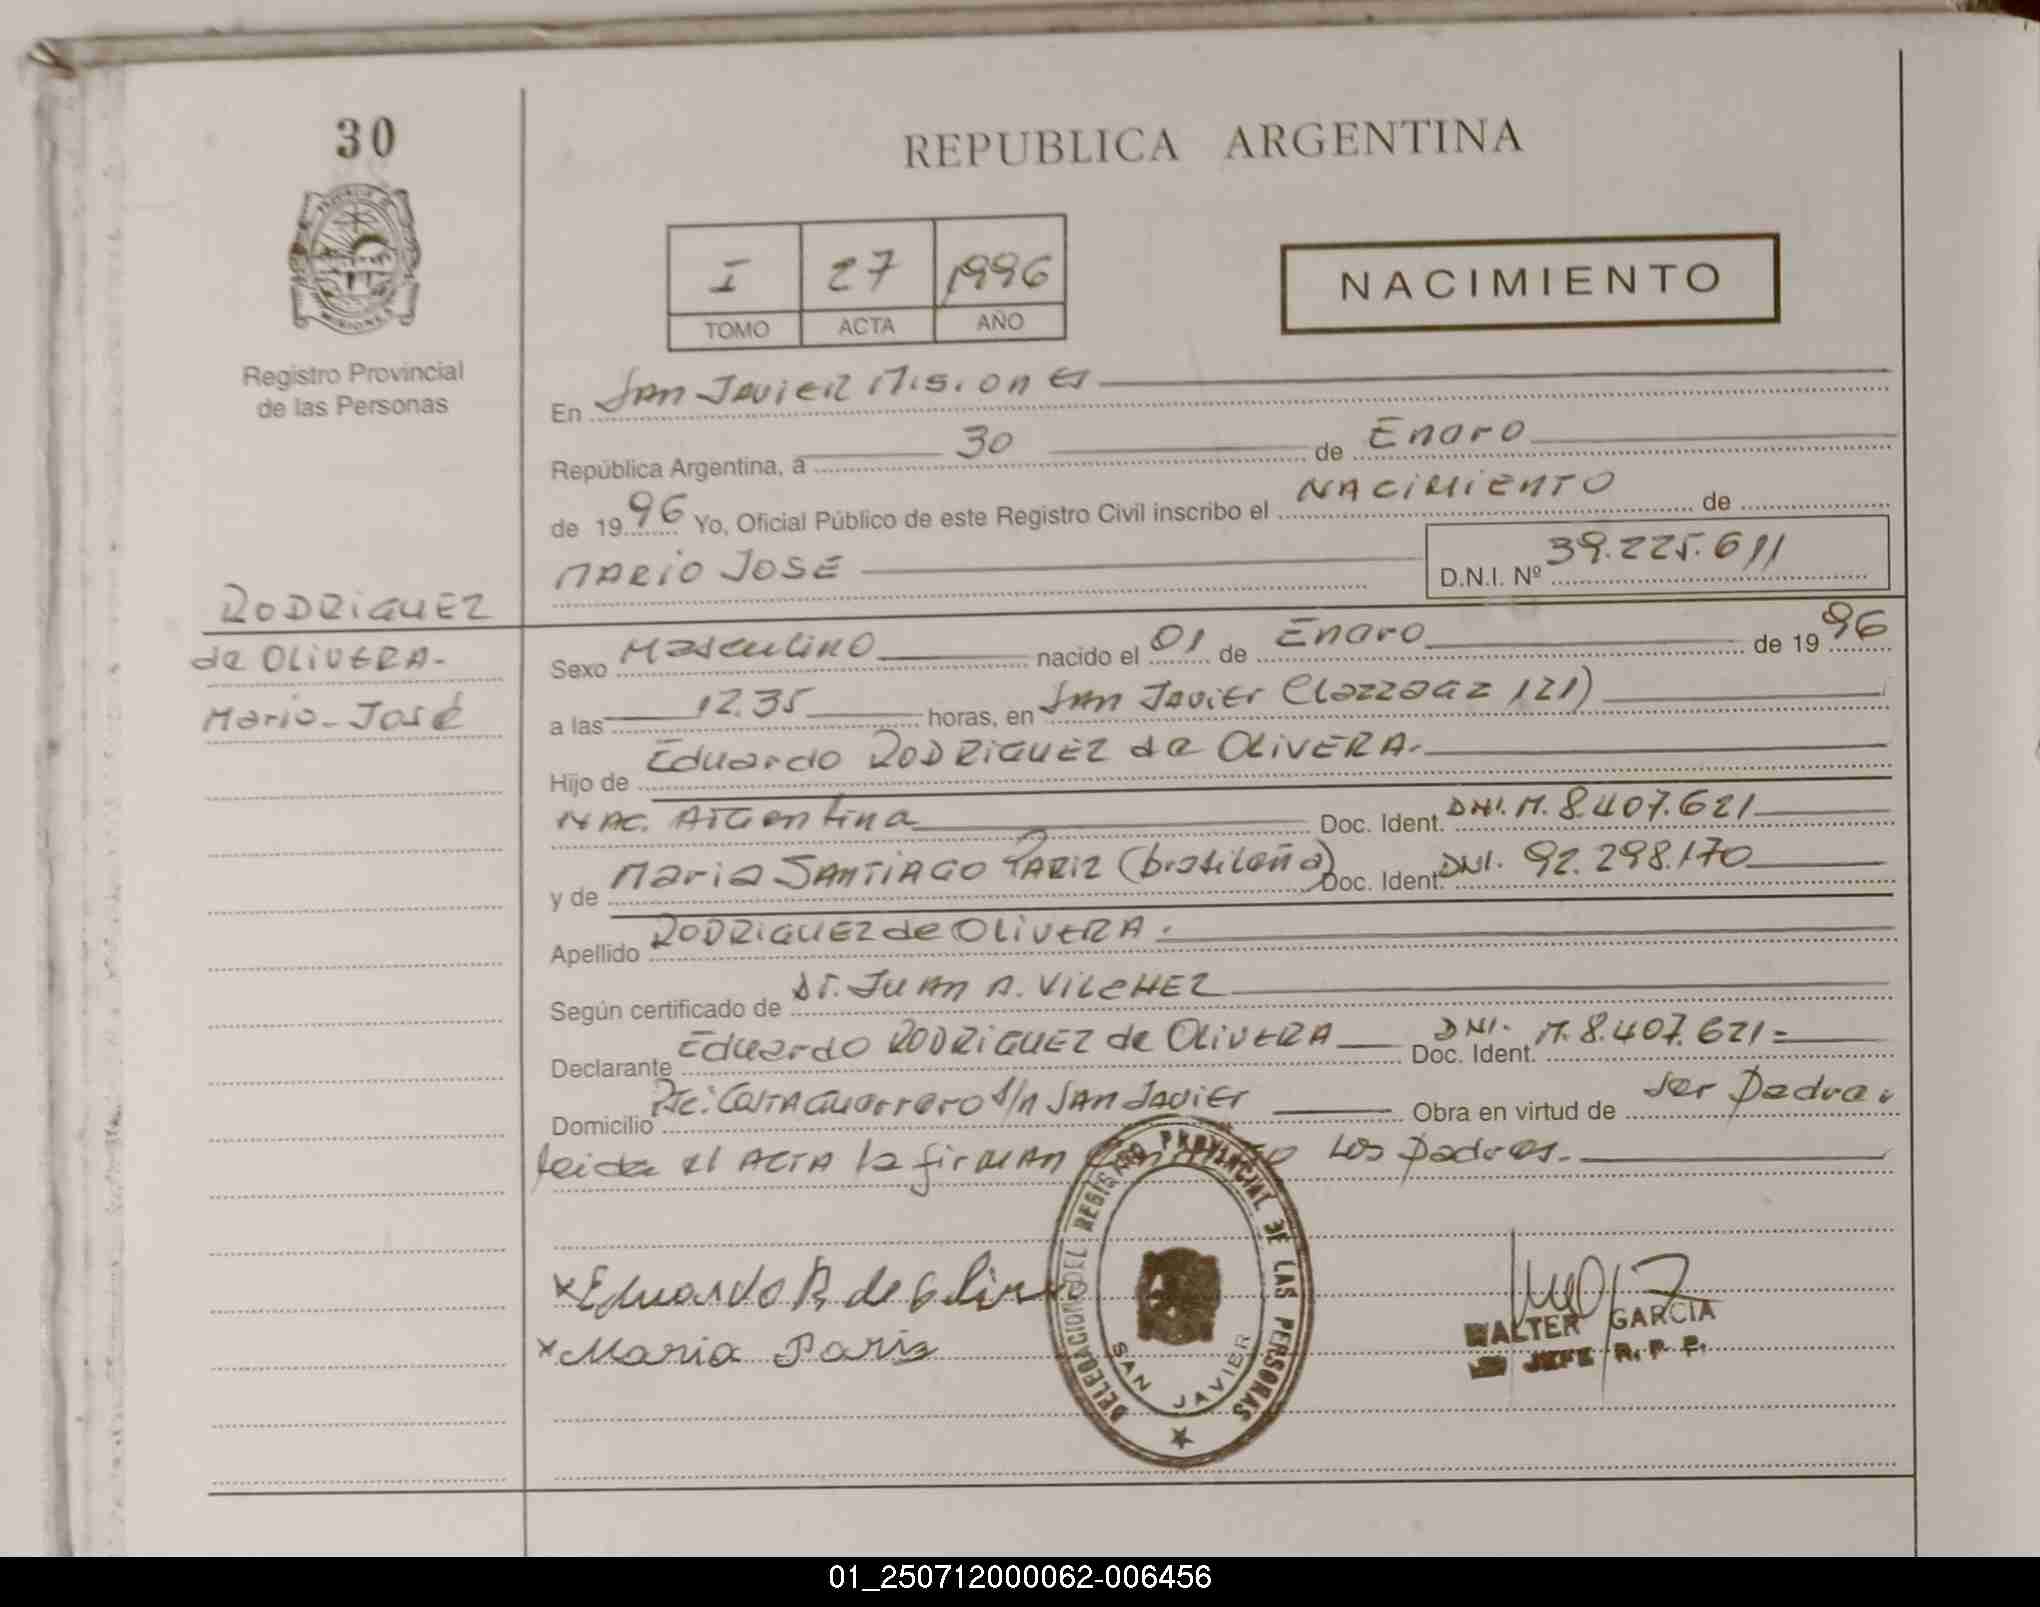 30
REPUBLICA ARGENTINA
I 27 1996
TOMO ACTA AÑO
NACIMIENTO
Registro Provincial
de las Personas
En San Javier Misiones
República Argentina, a 30 de Enero
de 1996 Yo, Oficial Público de este Registro Civil inscribo el NACIMIENTO de
MARIO JOSE D.N.I. Nº 39.225.611
RODRIGUEZ
de OLIVERA.
Mario José
Sexo Masculino nacido el 01 de Enero de 1996
a las 12.35 horas, en San Javier 121)
Hijo de Eduardo RODRIGUEZ de OLIVERA.
NAC. Argentina Doc. Ident. DNI. M. 8.407.621
y de Maria SANTIAGO PARIZ (brasileña) Doc. Ident. DNI. 92.298.170
Apellido RODRIGUEZ de OLIVERA.
Según certificado de Dr. JUAN A. VILCHEZ
Declarante Eduardo RODRIGUEZ de OLIVERA Doc. Ident. DNI. M. 8.407.621=
Domicilio Guerrero s/n San Javier Obra en virtud de ser Padre.
leida el ACTA la firman Los Padres.
DELEGACION DEL REGISTRO PROVINCIAL DE LAS PERSONAS
SAN JAVIER
x Eduardo R. de Oliv
x Maria Pariz
WALTER GARCIA
JEFE R. P. P.
01_250712000062-006456